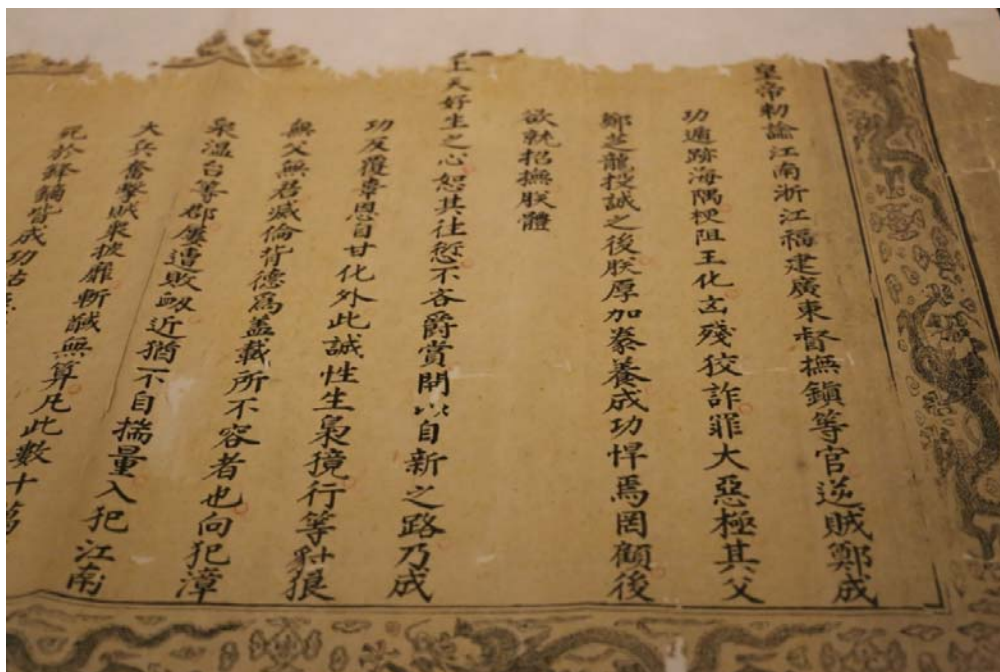 皇帝勅諭江南浙江福建廣東督撫鎮等官逆賊鄭成
功遁跡海隅梗阻王化凶殘狡詐罪大惡極其父
鄭芝龍投誠之後朕厚加豢養成功悍焉罔顧後
欲就招撫朕體
上天好生之心恕其往愆不吝爵賞開以自新之路乃成
功反覆辜恩自甘化外此誠性生梟獍行等豺狼
無父無君滅倫背德為蓋載所不容者也向犯漳
泉溫台等郡屢遭敗衂近猶不自揣量入犯江南
大兵奮擊賊衆披靡斬馘無算凡此數十萬
死於鋒鏑皆成功